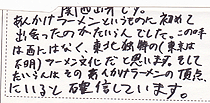 関西出身です。
あんかけラーメンというものに初めて
出会ったのがたいらんでした。この手
は西にはなく、東北 (東京は
不明)ラーメン文化だと思います。そして
たいらんはその あんかけラーメンの頂点
にいると確信しています。